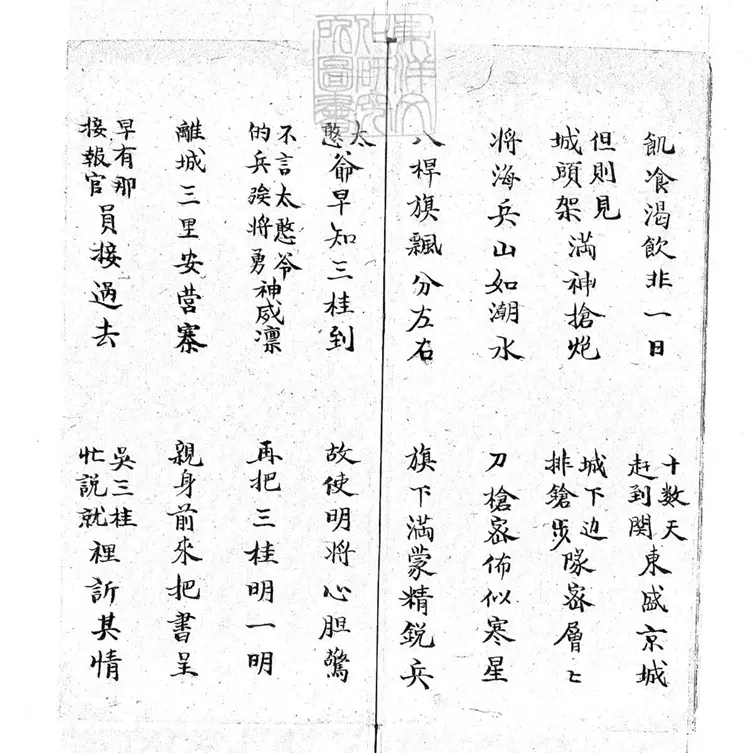 飢飡渴飲非一日
十数天赶到関東盛京城
但則見城頭架滿神搶炮
城下边排鎗步隊密層〻
将海兵山如潮水
刀槍密佈似寒星
八桿旗飄分左右
旗下満蒙精鋭兵
太憨爺早知三桂到
故使明将心胆驚
不言太憨爷的兵強将勇神威凛
再把三桂明一明
離城三里安营寨
親身前來把書呈
早有那接報官員接過去
吳三桂忙説就裡訴其情
東洋文化研究所圖書